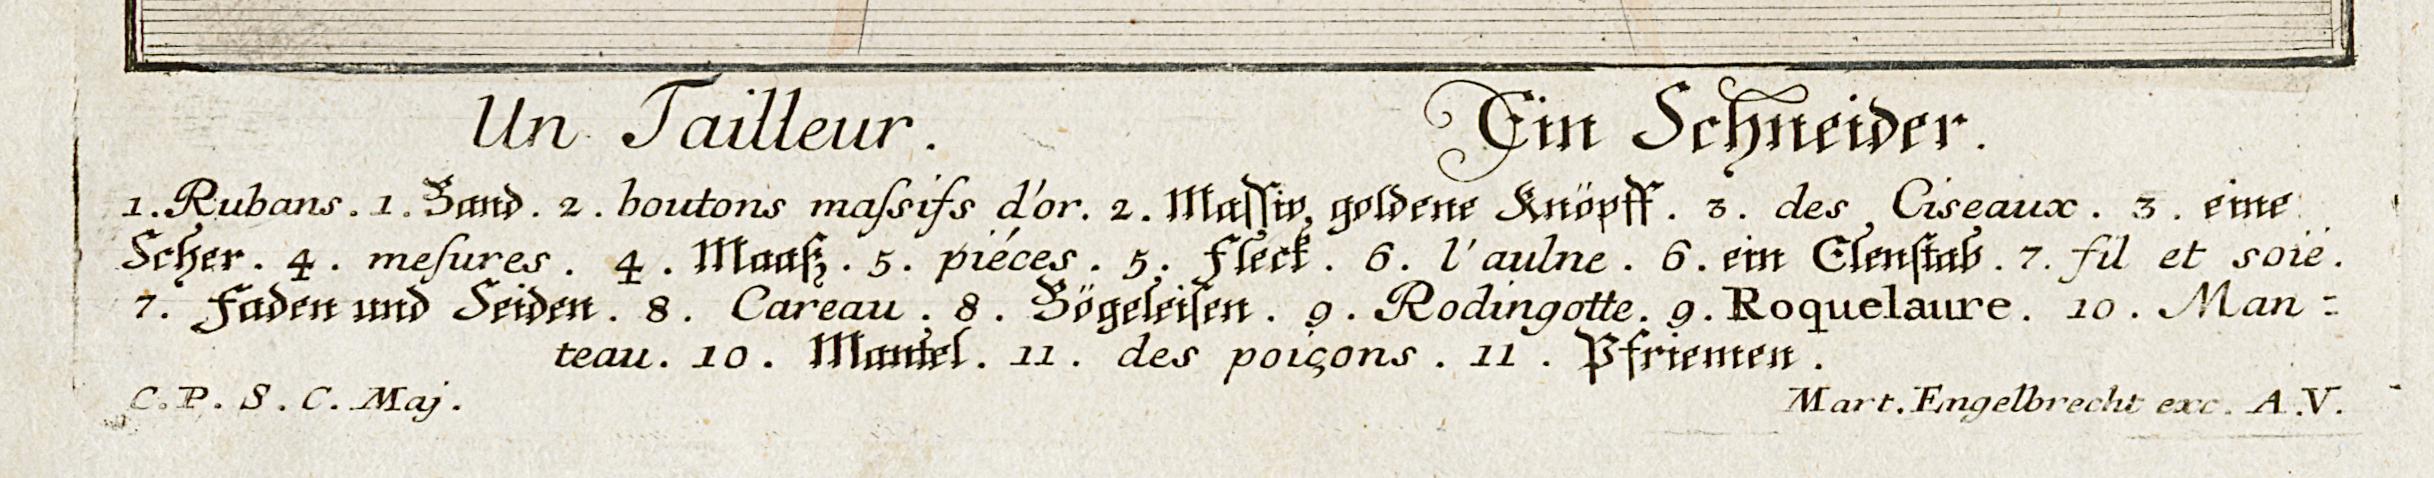 Un Tailleur. Ein Schneider.
1. Rubans. 1. Band. 2. boutons maſsifs d'or. 2. Maſſiv, goldene Knöpff. 3. des Ciseaux. 3. eine
Scher. 4. meſures. 4. Maaß. 5. piéces. 5. Fleck. 6. l'aulne. 6. ein Elenſtab. 7. fil et soie.
7. Faden und Seiden. 8. Careau. 8. Bögeleiſen. 9. Rodingotte. 9. Roquelaure. 10. Man:
teau. 10. Mantel. 11. des poiçons. 11. Pfriemen.
C. P. S. C. Maj. Mart. Engelbrecht exc. A.V.